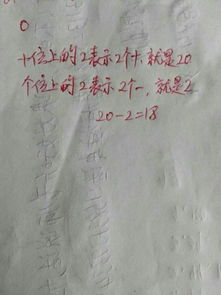 十位上的2表示2个十,就是20
个位上的2表示2个一,就是2
20-2=18